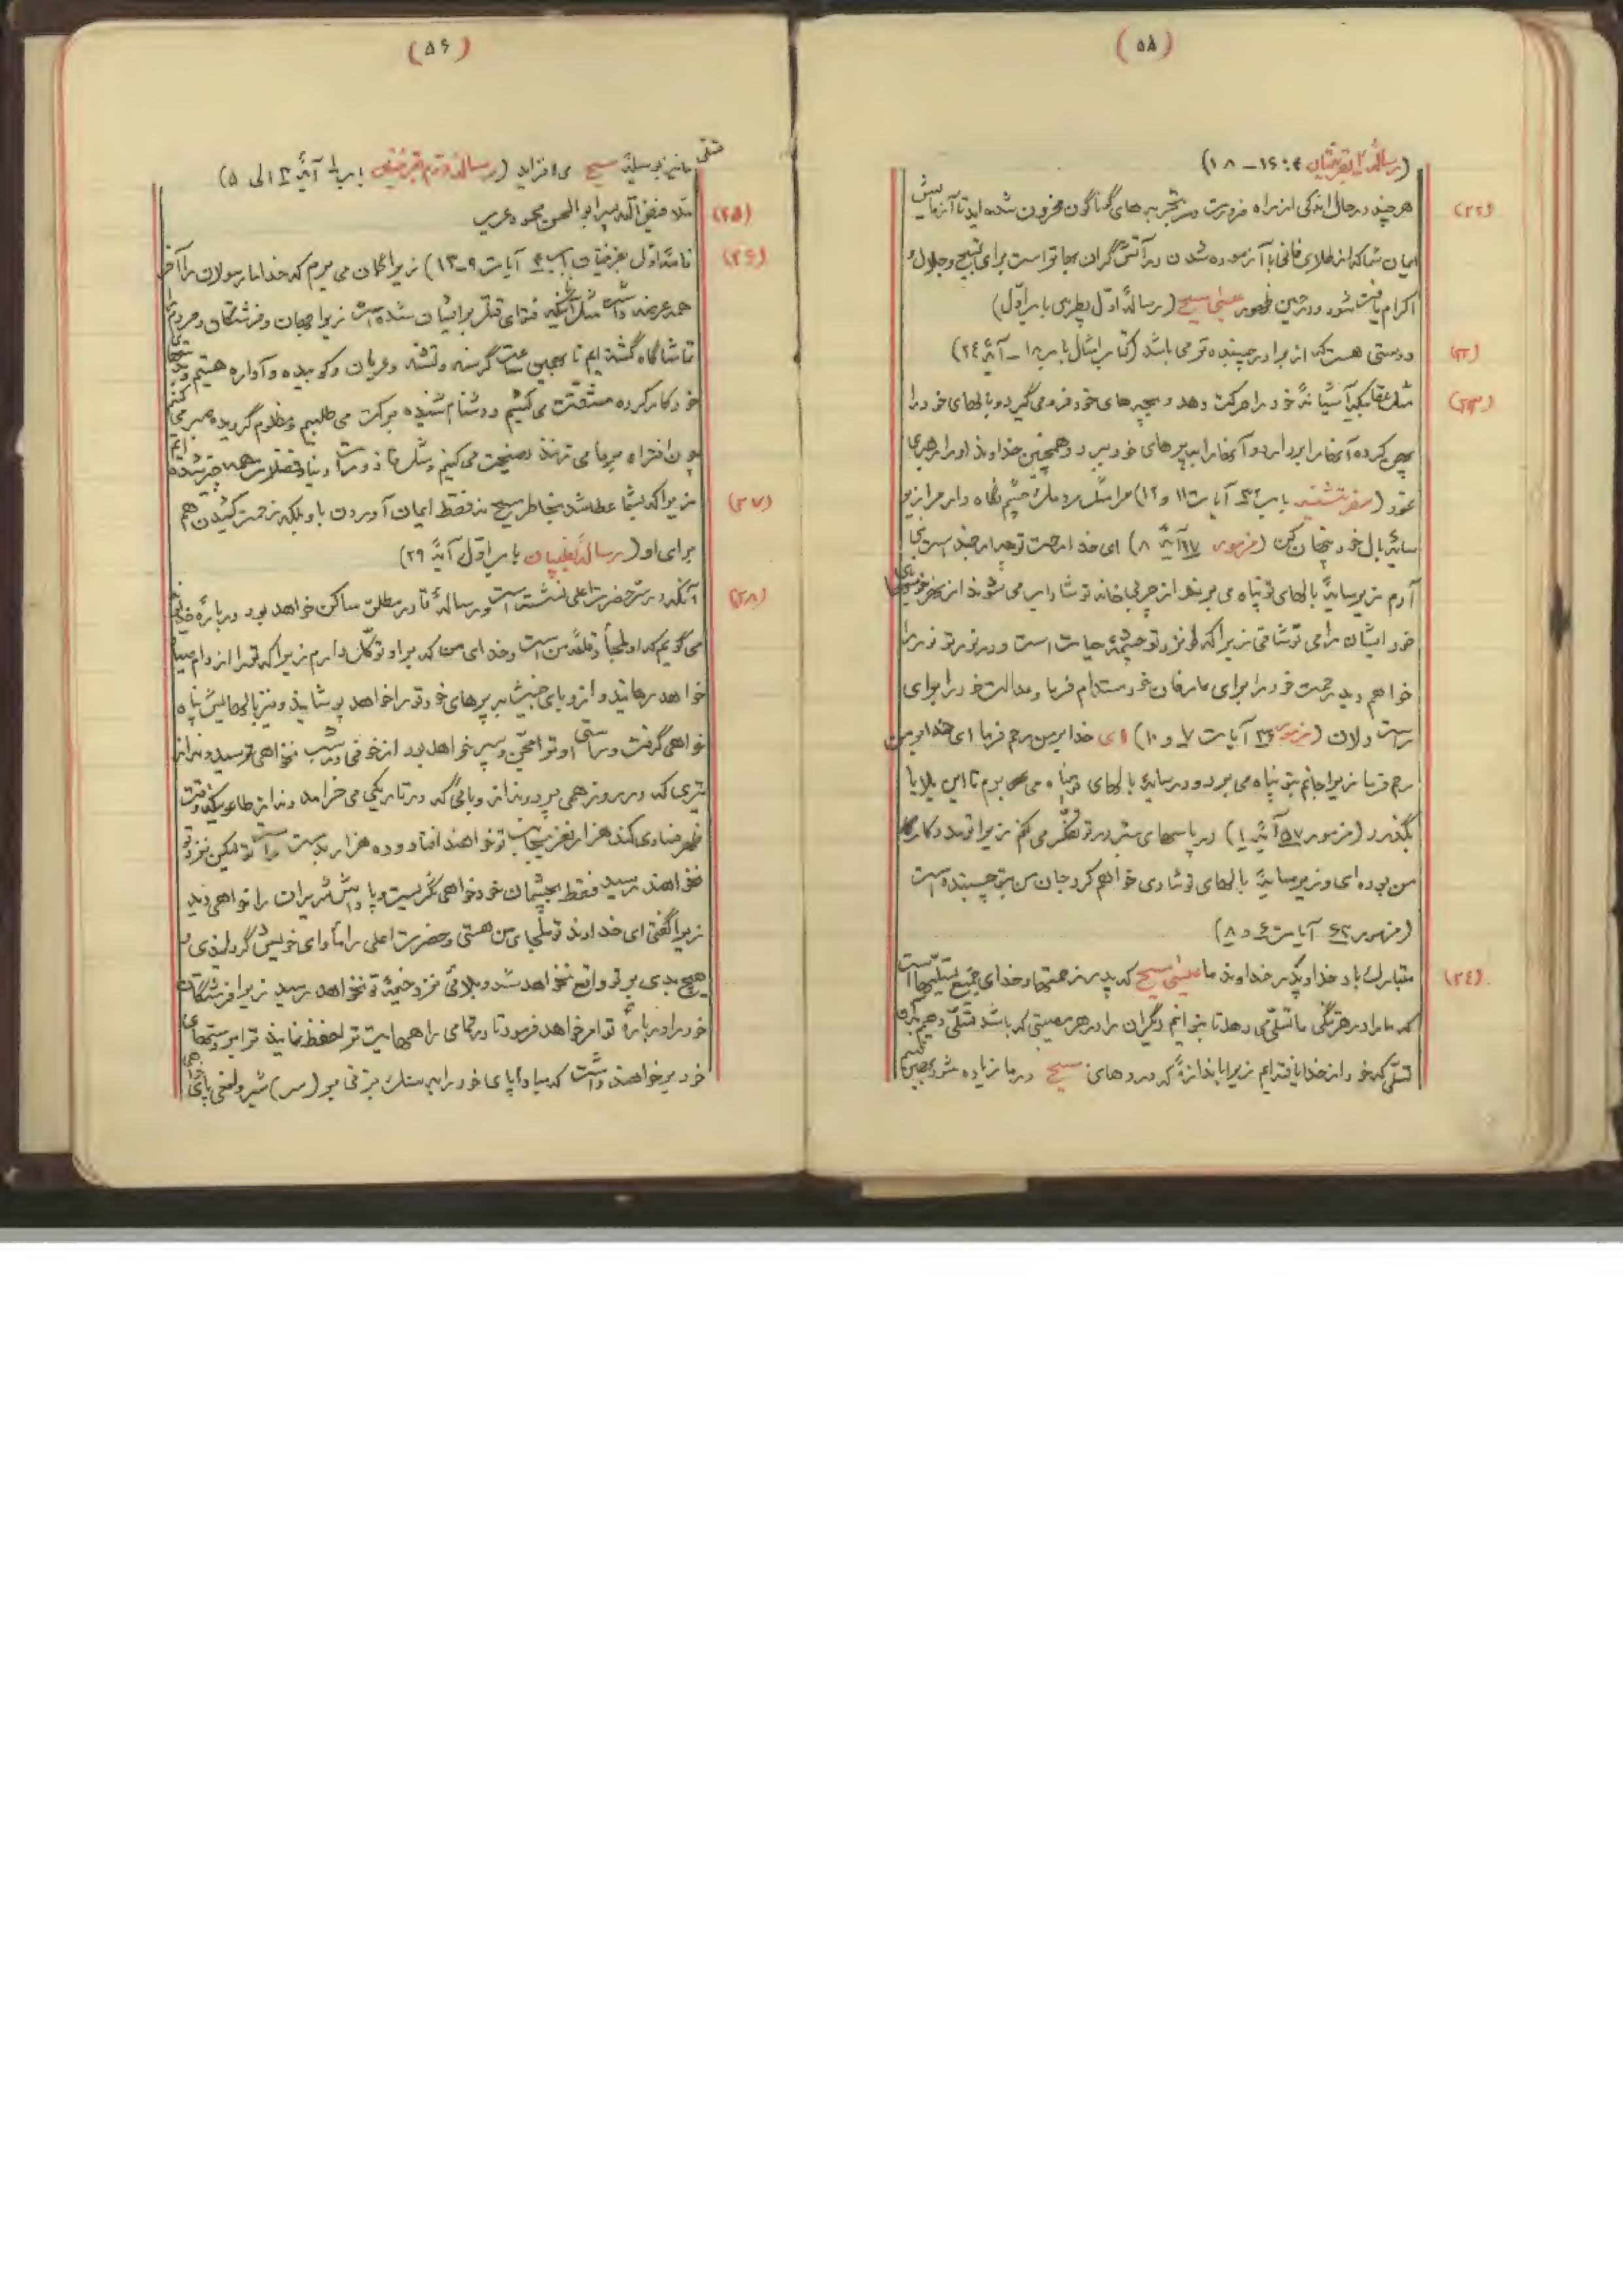 (۵۸)
(رسالهٔ ۲ بقرنتیان ۴: ۱۶ – ۱۸)
(۲۲) هر چند در حال اندکی از راه ضرورت در تجربه های گوناگون محزون شده اید تا آزمایش
ایمان شما که از طلای فانی با آزموده شدن در آتش گران بهاتر است برای تسبیح و جلال و
اکرام یافت شود در حین ظهور عیسی مسیح (رسالهٔ اول پطرس باب اول)
دوستی هست که از برادر چسبنده تر می باشد (کتاب امثال باب ۱۸ – آیهٔ ۲٤)
(۲۳) مثل عقابیکه آشیانهٔ خود را حرکت دهد و بچه های خود فرو می گیرد و بالهای خود را
پهن کرده آنها را بردارد و آنها را بر پرهای خود ببرد و همچنین خداوند او را رهبری
نمود (سفر تثنیه باب ۳۲ آیات ۱۱ و ۱۲) مرا مثل مردمک چشم نگاه دار مرا زیر
سایهٔ بال خود پنهان کن (مزمور ۱۷ آیهٔ ۸) ای خدا رحمت تو چه ارجمند است بنی
آدم زیر سایهٔ بالهای تو پناه می برند از چربی خانه تو شاداب می شوند از نهر خوشیهای
خود ایشان را می نوشانی زیرا که نزد تو چشمهٔ حیات است و در نور تو نور را
خواهم دید رحمت خود را برای عارفان خود مستدام فرما و عدالت خود را برای
راست دلان (مزمور ۳۶ آیات ۷ و ۱۰) ای خدا بر من رحم فرما ای خدا بر من
رحم فرما زیرا جانم بتو پناه می برد و در سایهٔ بالهای تو پناه می برم تا این بلایا
بگذرد (مزمور ۵۷ آیهٔ ۱) در پاسهای شب در تو تفکر می کنم زیرا تو مددکار
من بوده ای و زیر سایهٔ بالهای تو شادی خواهم کرد جان من بتو چسبیده است
(مزمور ۶۳ آیات ۶ و ۸)
(۲٤) متبارک باد خدا و پدر خداوند ما عیسی مسیح که پدر رحمتها و خدای جمیع تسلیهاست
که ما را در هر تنگی ما تسلی می دهد تا بتوانیم دیگران را در هر مصیبتی که باشد تسلی دهیم
تسلی که خود از خدا یافته ایم زیرا باندازهٔ که دردهای مسیح در ما زیاده شود
(۵۶)
تسلی ما نیز بوسیلهٔ مسیح می افزاید (رسالهٔ دوم قرنتیان باب ۱ آیهٔ ۳ الی ۵)
(۲۵) ملا فیض الله پسر ابو الحسن محمود عرب
(۲۶) نامهٔ اول بقرنتیان باب ۴ آیات ۹–۱۳) زیرا گمان می برم که خدا ما رسولان را آخر
همه عرضه داشت مثل آنانیکه فتوای قتل بر ایشان شده است زیرا جهان و فرشتگان و مردم را
تماشاگاه گشته ایم تا بهمین ساعت گرسنه و تشنه و عریان و کوبیده و آواره هستیم و بدستهای
خود کار کرده مشقت می کشیم و دشنام شنیده برکت می طلبیم و مظلوم گردیده صبر می کنیم
چون افتراء بر ما می زنند نصیحت می کنیم و مثل قاذورات دنیا و فضلات همه چیز شده ایم
(۲۷) زیرا که بشما عطا شد بخاطر مسیح نه فقط ایمان آوردن باو بلکه زحمت کشیدن هم
برای او (رسالهٔ بفیلیپیان باب اول آیهٔ ۲۹)
(۲۸) آنکه در ستر حضرت اعلی نشسته است در سایهٔ قادر مطلق ساکن خواهد بود دربارهٔ خداوند
می گویم که او ملجأ و قلعه من است و خدای من که بر او توکل دارم زیرا که تو را از دام صیاد
خواهد رهانید و از وبای خبیث به پرهای خود تو را خواهد پوشانید و زیر بالهایش پناه
خواهی گرفت و راستی او تو را مجن و سپر خواهد بود از خوفی در شب نخواهی ترسید و نه از
تیری که در روز همی پرد و نه از وبائی که در تاریکی می خرامد و نه از طاعونیکه وقت
ظهر فساد می کند هزار نفر بجانب تو خواهند افتاد و ده هزار بدست راست تو لیکن نزد تو
نخواهند رسید فقط بچشمان خود خواهی نگریست و پاداش شریران را خواهی دید
زیرا گفتی ای خداوند تو ملجای من هستی و حضرت اعلی را ماوای خویش گردانیدی
هیچ بدی بر تو واقع نخواهد شد و بلائی نزد خیمهٔ تو نخواهد رسید زیرا فرشتگان
خود را دربارهٔ تو امر خواهد فرمود تا در تمامی راههایت ترا حفظ نمایند ترا بر دستهای
خود بر خواهند داشت که مبادا پای خود را به سنگ بزنی بر (سر) شیر و افعی پای خواهی